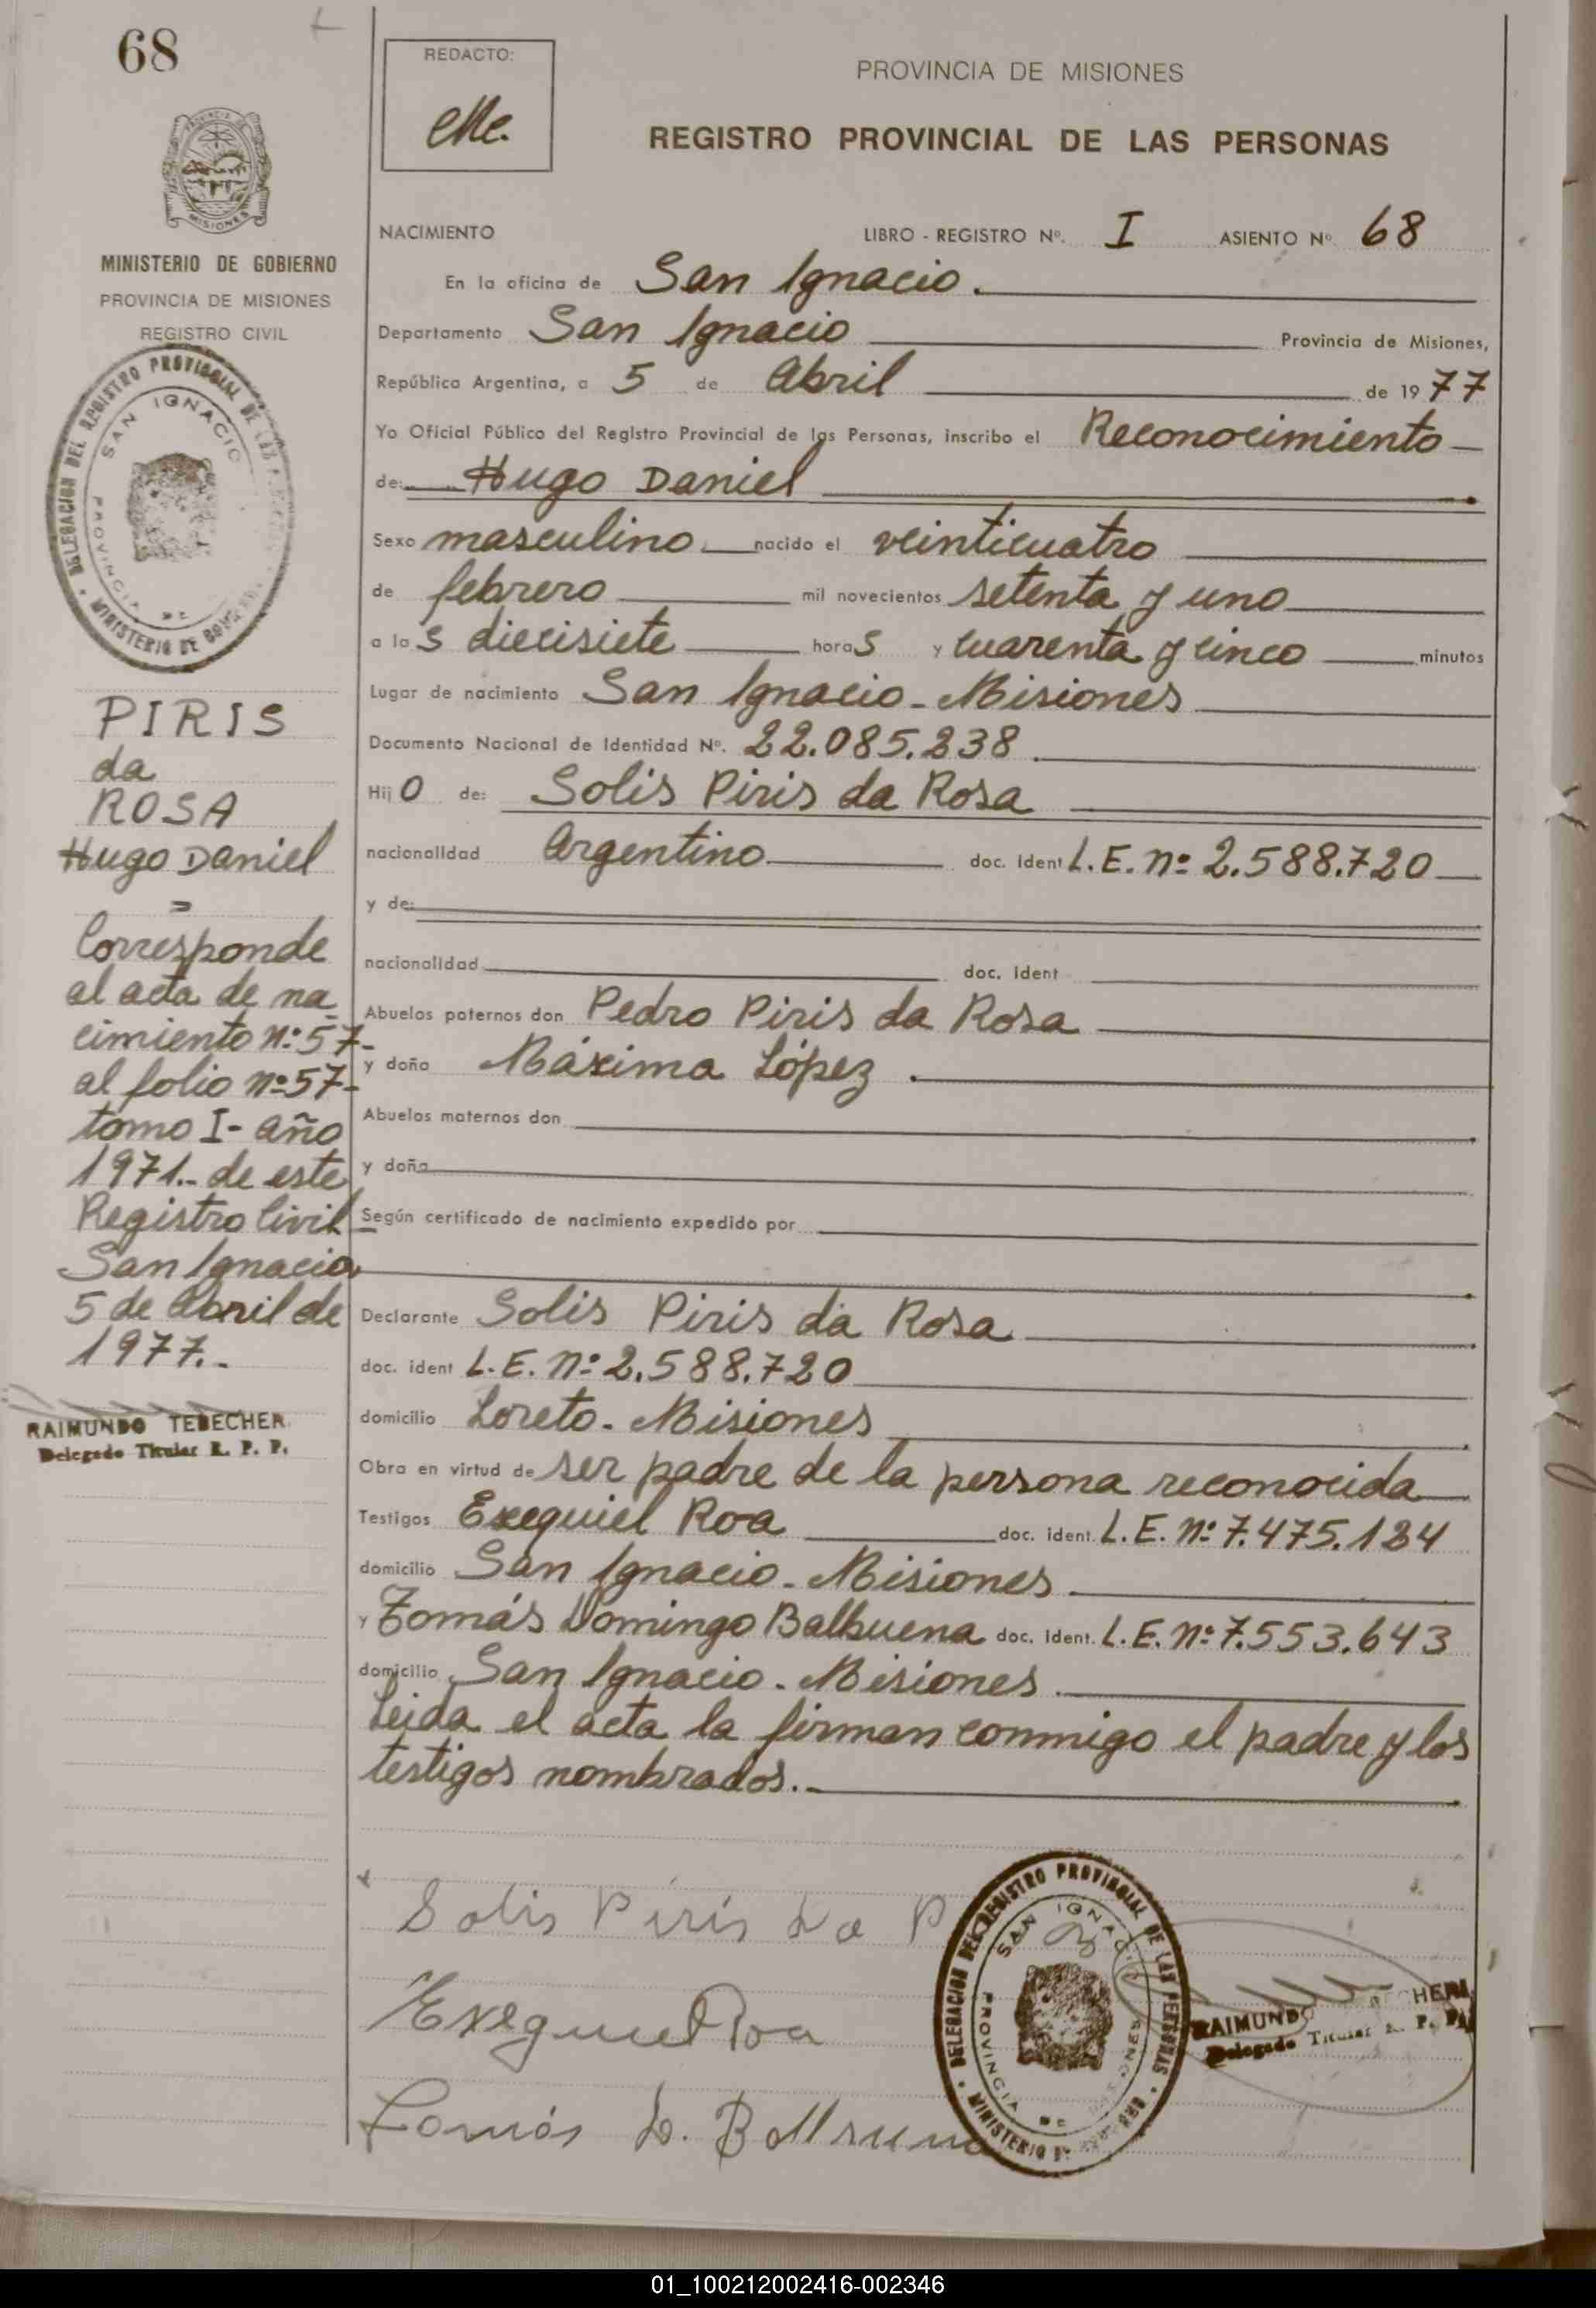 68
REDACTO:
PROVINCIA DE MISIONES
REGISTRO PROVINCIAL DE LAS PERSONAS
MINISTERIO DE GOBIERNO
PROVINCIA DE MISIONES
REGISTRO CIVIL
DELEGACION DEL REGISTRO PROVINCIAL DE LAS
SAN IGNACIO
PROVINCIA DE
MINISTERIO DE
PIRIS
da
ROSA
Hugo Daniel
=
Corresponde
al acta de na
cimiento nº 57-
al folio nº 57-
tomo I- año
1971.- de este
Registro Civil
San Ignacio
5 de Abril de
1977.-
RAIMUNDO TEBECHER
Delegado Titular R. P. P.
NACIMIENTO LIBRO - REGISTRO Nº. I ASIENTO Nº 68
En la oficina de San Ignacio.
Departamento San Ignacio Provincia de Misiones,
República Argentina, a 5 de Abril de 1977
Yo Oficial Público del Registro Provincial de las Personas, inscribo el Reconocimiento
de: Hugo Daniel
Sexo masculino nacido el veinticuatro
de febrero mil novecientos setenta y uno
a las diecisiete horas y cuarenta y cinco minutos
Lugar de nacimiento San Ignacio - Misiones
Documento Nacional de Identidad Nº. 22.085.238
Hijo de: Solis Piris da Rosa
nacionalidad Argentino doc. ident L.E. nº 2.588.720
y de:
nacionalidad doc. ident
Abuelos paternos don Pedro Piris da Rosa
y doña Máxima López.
Abuelos maternos don
y doña
Según certificado de nacimiento expedido por
Declarante Solis Piris da Rosa
doc. ident L.E. nº 2.588.720
domicilio Loreto - Misiones
Obra en virtud de ser padre de la persona reconocida
Testigos Exequiel Roa doc. ident. L.E. nº 7.475.124
domicilio San Ignacio - Misiones
y Tomás Domingo Balbuena doc. ident. L.E. nº 7.553.643
domicilio San Ignacio - Misiones
Leida el acta la firman conmigo el padre y los
testigos nombrados.-
Solis Piris da
Exequiel Roa
Tomás D. Balbuena
DELEGACION DEL REGISTRO PROVINCIAL DE LAS PERSONAS
SAN IGNACIO
PROVINCIA DE MISIONES
MINISTERIO DE
RAIMUNDO
Delegado Titular R. P. P.
01_100212002416-002346